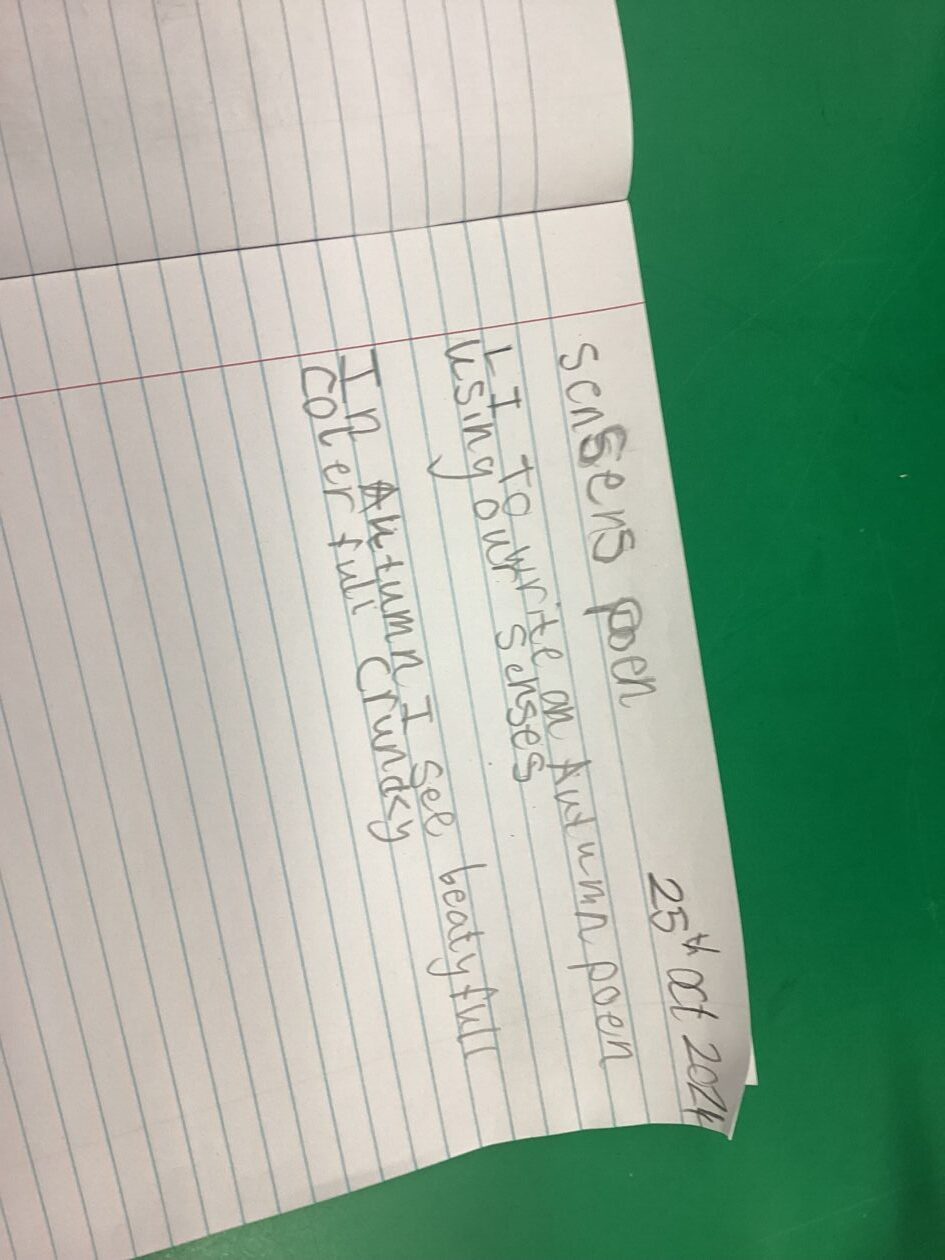 25th oct 2024
sensens poen
LI To write an Autumn poen
using our senses
In Autumn I see beatyfull
Colerfull Crundky